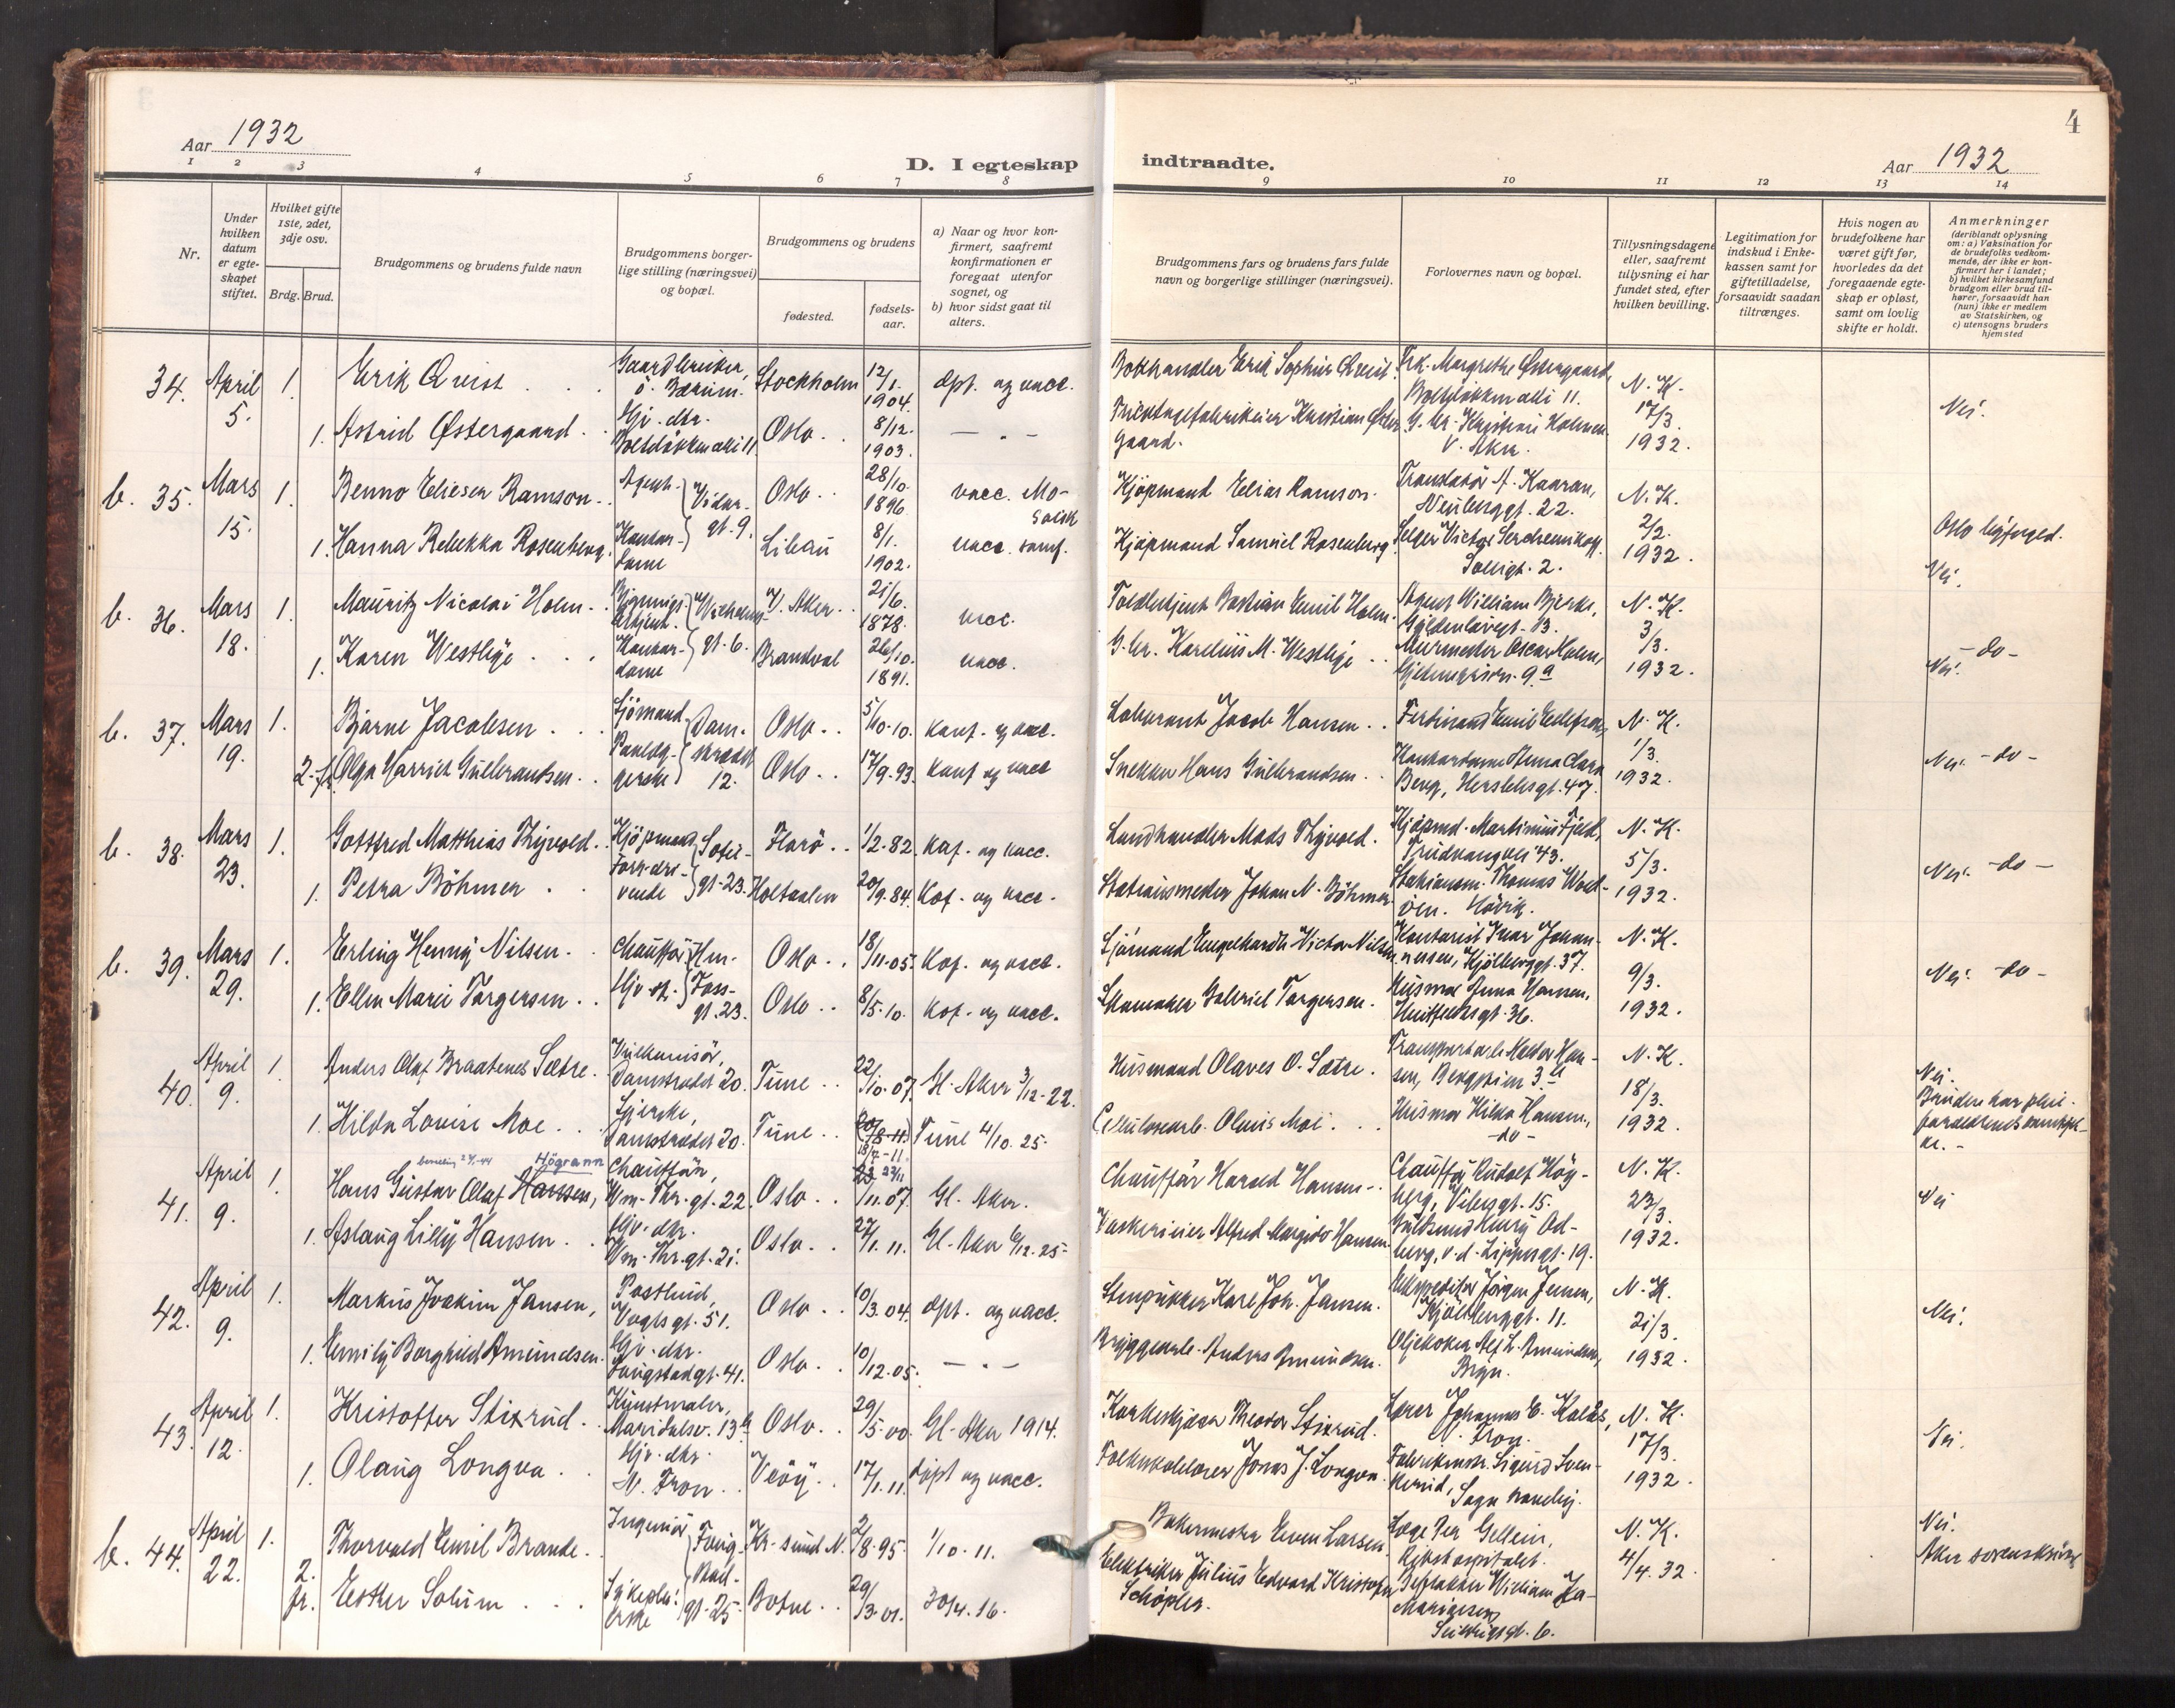 4
Aar 1932
D. I egteskap
indtraadte.
Aar 1932
1 2 3 4 5 6 7 8 9 10 11 12 13 14
Nr.
Under hvilken datum er egteskapet stiftet.
Hvilket gifte 1ste, 2det, 3dje osv.
Brdg. Brud.
Brudgommens og brudens fulde navn
Brudgommens borgerlige stilling (næringsvei) og bopæl.
Brudgommens og brudens
fødested.
fødsels-aar.
a) Naar og hvor konfirmert, saafremt konfirmationen er foregaat utenfor sognet, og
b) hvor sidst gaat til alters.
Brudgommens fars og brudens fars fulde navn og borgerlige stillinger (næringsvei).
Forlovernes navn og bopæl.
Tillysningsdagene eller, saafremt tillysning ei har fundet sted, efter hvilken bevilling.
Legitimation for indskud i Enkekassen samt for giftetilladelse, forsaavidt saadan tiltrænges.
Hvis nogen av brudefolkene har været gift før, hvorledes da det foregaaende egteskap er opløst, samt om lovlig skifte er holdt.
Anmerkninger
(deriblandt oplysning om: a) Vaksination for de brudefolks vedkommende, der ikke er konfirmert her i landet; b) hvilket kirkesamfund brudgom eller brud tilhører, forsaavidt han (hun) ikke er medlem av Statskirken, og c) utensogns bruders hjemsted
34. April 5. 1. Erik Qvist Gaardbruker, Ö. Bærum. Stockholm 12/1. 1904. dpt. og vacc. Bokhandler Erik Sophius Qvist. Frk. Margrethe Østergaard, Boltelökkenalli 11. N. K. 17/3. 1932. Nei.
1. Astrid Østergaard Hjv. dtr. Boltelökkenalli 11 Oslo 8/12. 1903. — " — Tricotagefabrikeier Kristian Østergaard. G. br. Kristian Holmen V. Aker.
b. 35. Mars 15. 1. Benno Elieser Ramson Agent. Vidargt. 9. Oslo 28/10. 1896 vacc. Mosaisk Kjöpmand Elias Ramson. Translatör A. Kaaran, Neuberggt. 22. N. K. 2/2. 1932. Oslo byfoged.
1. Hanna Rebekka Rosenberg. Kontordame Libau 8/1. 1902. vacc. samf. Kjöpmand Samuel Rosenberg Selger Victor Solligt. 2. Nei.
b. 36. Mars 18. 1. Mauritz Nicolai Holm Wilhelmsgt. 6. V. Aker 21/6. 1878. vacc. Toldbetjent Bastian Emil Holm. Agent William Bjerke, Gyldenlövesgt. 13. N. K. 3/3. 1932. — do —
1. Karen Westbye Kontordame Brandval 26/10. 1891. vacc. G. br. Karelius M. Westbye Murmester Oscar Holm, 9 a Nei.
b. 37. Mars 19. 1. Bjarne Jacobsen Sjömand Damstrædet 12. Oslo 5/10-10. konf. og vacc. Laborant Jacob Hansen Ferdinand Emil N. K. 1/3. 1932. Nei. — do —
2. fr. Olga Harriet Gulbrandsen Oslo 17/9-93. Konf og vacc Snekker Hans Gulbrandsen Kontordame Anna Clara Berg, Herslebsgt. 47.
b. 38. Mars 23. 1. Gottfred Matthias Thyvold Kjöpmand Sofiegt. 23. Florö 1/2-82. Kof. og vacc. Landhandler Mads Thyvold. Kjöpmd. Martinius Fjeld, Trudvangvei 43. N. K. 5/3. 1932. Nei. — do —
1. Petra Böhmer Holtaalen 20/9-84. Kof. og vacc. Stationsmester Johan N. Böhmer Stationsm. Thomas Hövik.
b. 39. Mars 29. 1. Erling Henry Nilsen Chauffør Fossgt. 23. Oslo 18/11-05. Kof. og vacc. Sjömand Engelhardt Victor Nilsen Kontorist Ivar Johannessen, Kjölberggt. 37. N. K. 9/3. 1932. Nei. — do —
1. Ellen Marie Torgersen Oslo 8/5-10. Kof. og vacc. Skomaker Gabriel Torgersen. Husmor Anna Hansen, Huitfeldtsgt. 36.
40. April 9. 1. Anders Olaf Braatenes Sætre Vulkanisör, Damstrædet 20. Tune 22/10-07. Gl. Aker 3/12-22. Husmand Olaves O. Sætre. N. K. 18/3. 1932. Nei.
1. Hilda Louise Moe Syerske, Damstrædet 20. Tune 18/7-11 Tune 4/10. 25. Cellulosearb. Olaus Moe. Husmor Hilda Hansen, — do —
41. April 9. 1. Hans Gustav Olaf Hansen, Högrann Chauffør, Wm. Thr. gt. 22. Oslo 23/11-07. Gl. Aker. Chauffør Harald Hansen Chauffør Rudolf Höyberg, Vibesgt. 15. N. K. 23/3. 1932. Nei
1. Aslaug Lilly Hansen Hjv. dtr. Wm. Thr. gt. 21. Oslo 27/1. 11. Gl. Aker 6/12-25 Vaskerieier Alfred Margido Hansen. Gullsmed Henry Odberg, v. d. Lippesgt. 19.
42. April 9. 1. Markus Joakim Jansen, Postbud, Vogtsgt. 51. Oslo 10/3-04. dpt. og vacc. Stenpukker Karl Joh. Jansen. Ekspeditör Jörgen Jensen, Kjölberggt. 11. N. K. 21/3. 1932. Nei.
1. Emily Borghild Amundsen Hjv. dtr. Tungstadgt. 41. Oslo 10/12-05. — " — Bryggearb. Anders Amundsen. Oljekoker Alf L. Amundsen, Bryn.
43. April 12. 1. Kristoffer Stixrud Kunstmaler, Maridalsv. 13 a Oslo 29/5-00. Gl. Aker 1914. Korkeskjærer Theodor Stixrud. Lærer Johannes E. Kolås, N. Fron. N. K. 17/3. 1932. Nei.
1. Olaug Longva Hjv. dtr. N. Fron. Veöy 17/1. 11. döpt og vacc. Folkeskolelærer Jonas J. Longva Fabrikmstr. Sigurd Svenkerud, Sagn haveby.
b. 44. April 22. 1. Thorvald Emil Brande Ingeniør Kr. sund N. 2/8-95. 1/10-11. Bakermester Even Larsen Læge Per Gellein, Rikshospitalet. N. K. 4/4. 32. Nei. Aker sorenskriver
2. fr. Esther Solum Sykepleierske Botne 29/3-01. 30/4. 16. Elektriker Julius Edvard Kristofer Schöpler. William Jo-Mariussen